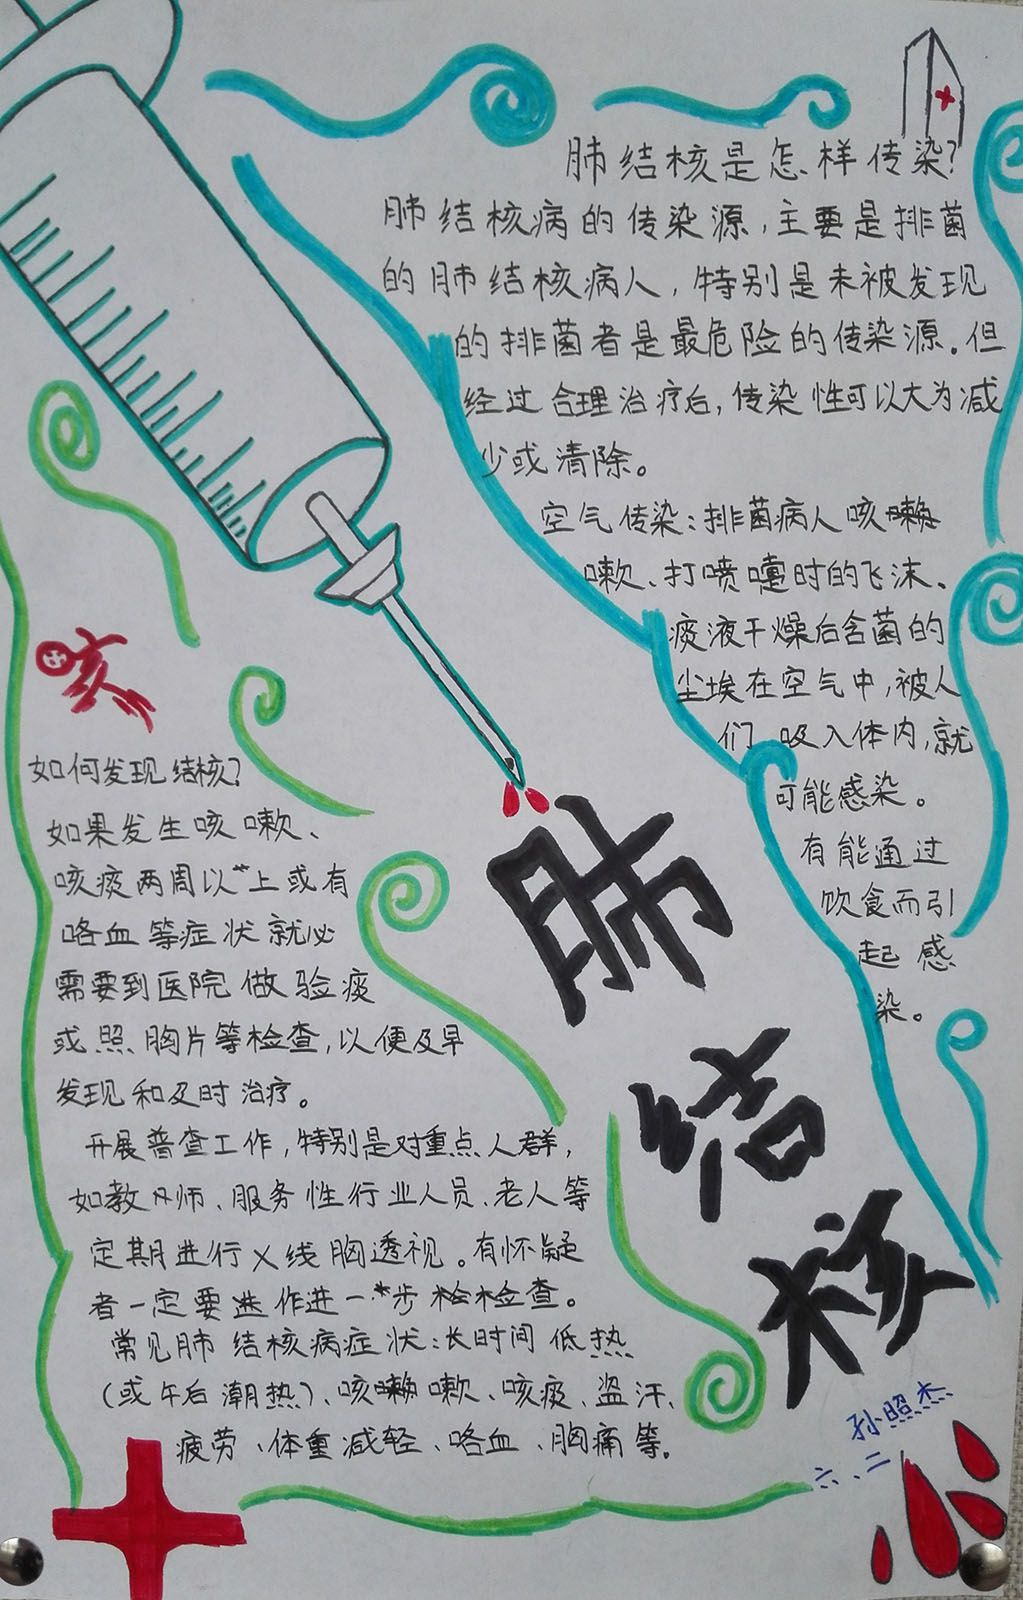 肺结核是怎样传染?
肺结核病的传染源,主要是排菌
的肺结核病人,特别是未被发现
的排菌者是最危险的传染源。但
经过合理治疗后,传染性可以大为减
少或清除。
空气传染:排菌病人咳
嗽、打喷嚏时的飞沫、
痰液干燥后含菌的
尘埃在空气中,被人
们吸入体内,就
可能感染。
有能通过
饮食而引
起感
染。
咳
如何发现结核?
如果发生咳嗽、
咳痰两周以上或有
咯血等症状就必
需要到医院做验痰
或照胸片等检查,以便及早
发现和及时治疗。
开展普查工作,特别是对重点人群,
如教师、服务性行业人员、老人等
定期进行X线胸透视。有怀疑
者一定要作进一步检查。
常见肺结核病症状:长时间低热
(或午后潮热)、咳嗽、咳痰、盗汗、
疲劳、体重减轻、咯血、胸痛等。
肺
结
核
孙照杰
六、二